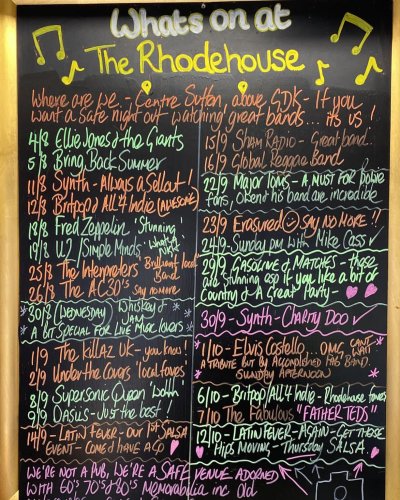 Whats on at
The Rhodehouse
Where are we - Centre Sutton, above GDK - If you
want a safe night out watching great bands... its us!
4/8 Ellie Jones & the Giants
5/8 Bring Back Summer
11/8 Synth - Always a Sellout!
12/8 Britpop / All 4 Indie (AWESOME)
18/8 Fred Zeppelin, 'Stunning'
19/8 U2 / Simple Minds - What's Not
25/8 The Interpreters - Brilliant local Band
26/8 The AC30's say no more
30/8 (WEDNESDAY) Whiskey &
JAM
A bit Special for Live Music lovers
1/9 The KillaZ UK - you know!
2/9 Under the Covers 'local faves'
8/9 Supersonic Queen 'both'!
9/9 OASiLS - Just the best!
14/9 - LATIN FEVER - our 1st SALSA
EVENT - Come & HAVE A GO
15/9 Sham RADIO - Great band.
16/9 Global Reggae Band
22/9 Major Toms - A MUST for Bowie
Fans, OK end his band are incredible
23/9 Erasured SAY NO MORE!!
24/9 - Sunday pm with Mike Cass
29/9 GASOLINE & MATCHES - these
are stunning, esp if you like a bit of
Country & A Great Party -
30/9 - Synth - Charity Doo
1/10 - Elvis Costello... OMG CANT WAIT
A TRIBUTE BUT By Accomplished HIS BAND
SUNDAY AFTERNOON
6/10 - Britpop / All 4 Indie - Rhodehouse faves
7/10 The Fabulous "FATHER TEDS"
12/10 - LATIN FEVER - AGAIN - GET THOSE
Hips MOVING - Thursday SALSA.
WE'RE NOT A PUB, WE'RE A SAFE VENUE ADORNED
WITH 60'S 70'S + 80'S Memorabilia inc Old